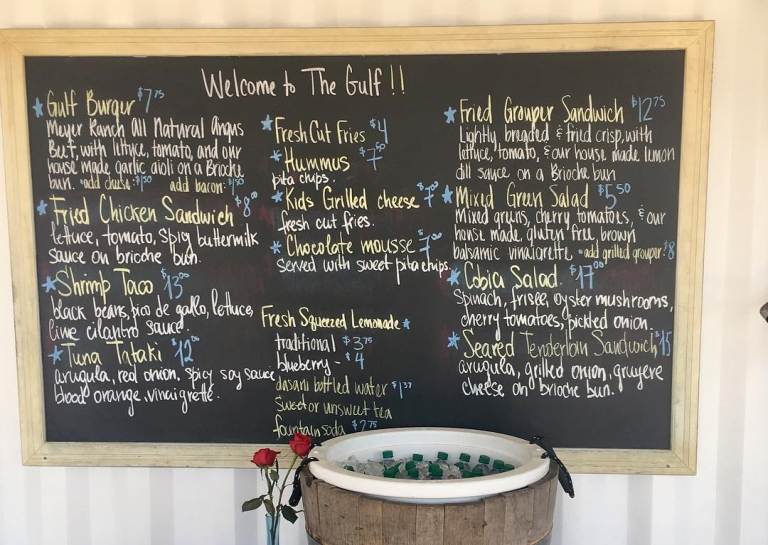 Welcome to The Gulf!!
Gulf Burger $7.75
Meyer Ranch All Natural Angus
Beef, with lettuce, tomato, and our
house made garlic aioli on a Brioche
bun. *add cheese $1.50 add bacon $1.50
Fried Chicken Sandwich $8.00
lettuce, tomato, spicy buttermilk
sauce on brioche bun.
Shrimp Taco $13.00
black beans, pico de gallo, lettuce,
lime cilantro sauce.
Tuna Tataki $12.00
arugula, red onion, spicy soy sauce,
blood orange, vinaigrette.
Fresh Cut Fries $4
Hummus $7.50
pita chips.
Kids Grilled cheese $7.00
fresh cut fries.
Chocolate mousse $7.00
served with sweet pita chips.
Fresh Squeezed Lemonade
traditional $3.75
blueberry - $4
dasani bottled water $1.37
Sweet or unsweet tea
fountain soda $2.75
Fried Grouper Sandwich $12.75
Lightly breaded & fried crisp, with
lettuce, tomato, & our house made lemon
dill sauce on a Brioche bun
Mixed Green Salad $5.50
Mixed greens, cherry tomatoes, & our
house made gluten free brown
balsamic vinaigrette *add grilled grouper $8
Cobia Salad $17.00
spinach, frisée, oyster mushrooms,
cherry tomatoes, pickled onion.
Seared Tenderloin Sandwich $15
arugula, grilled onion, gruyere
cheese on brioche bun.